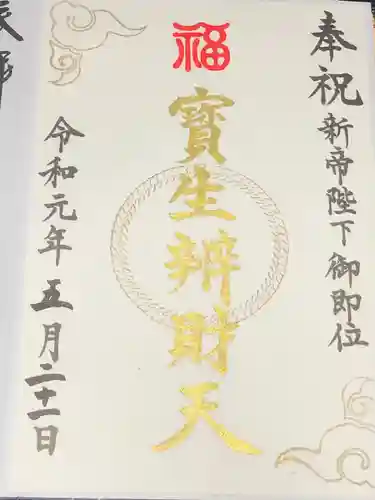 奉祝
新帝陛下御即位
福
寳生辨財天
令和元年五月二十一日